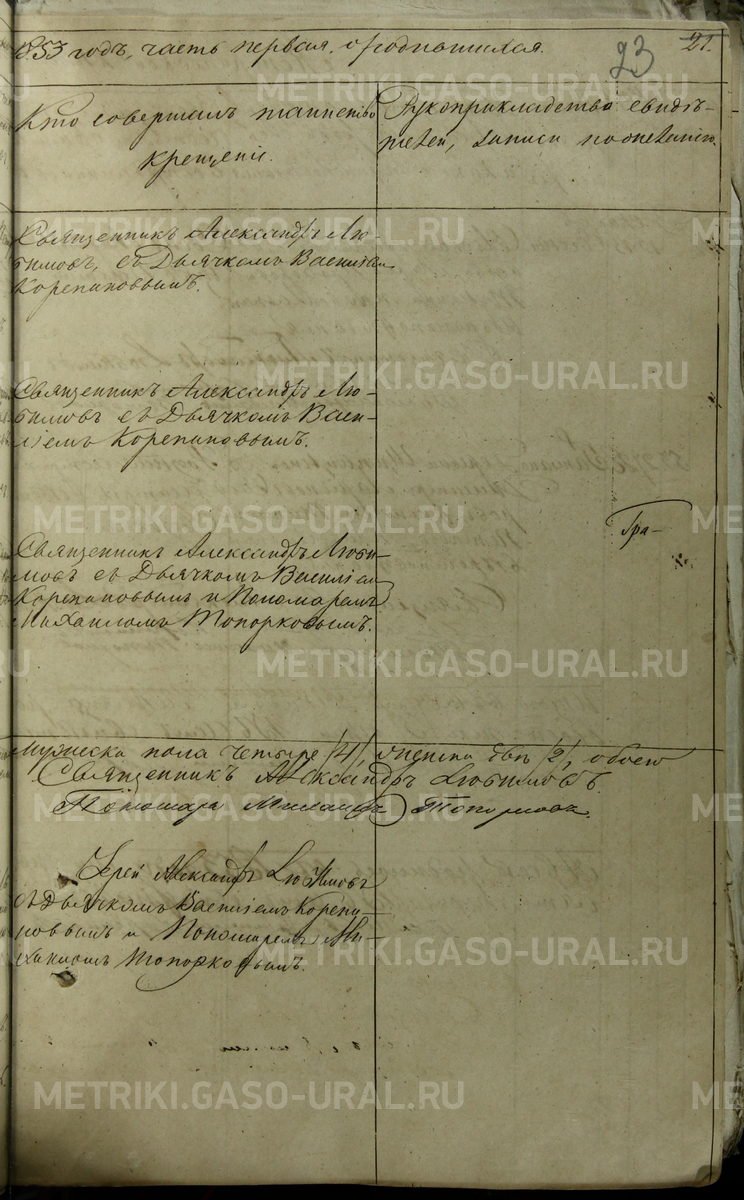 1853 годъ, часть первая, о родившихся.
23
21.
Кто совершалъ таинство
крещенія.
Рукоприкладство свидѣ-
телей, записи по желанію.
Священникъ Александръ Лю-
бимовъ, съ Дьячкомъ Василіем
Корепановымъ.
Священникъ Александръ Лю-
бимовъ съ Дьячкомъ Васи-
ліемъ Корепановымъ.
Священникъ Александръ Люби-
мовъ съ Дьячкомъ Василіем
Корепановымъ и Пономаремъ
Михаиломъ Топорковымъ.
Гра-
мужеска пола четыре /4/, женска двѣ /2/, обоего
Священникъ Александръ Любимовъ.
Пономарь Михаилъ Топорковъ.
Іерей Александръ Любимовъ
съ Дьячкомъ Василіемъ Корепа-
новымъ и Пономаремъ Ми-
хаиломъ Топорковымъ.
METRIKI.GASO-URAL.RU